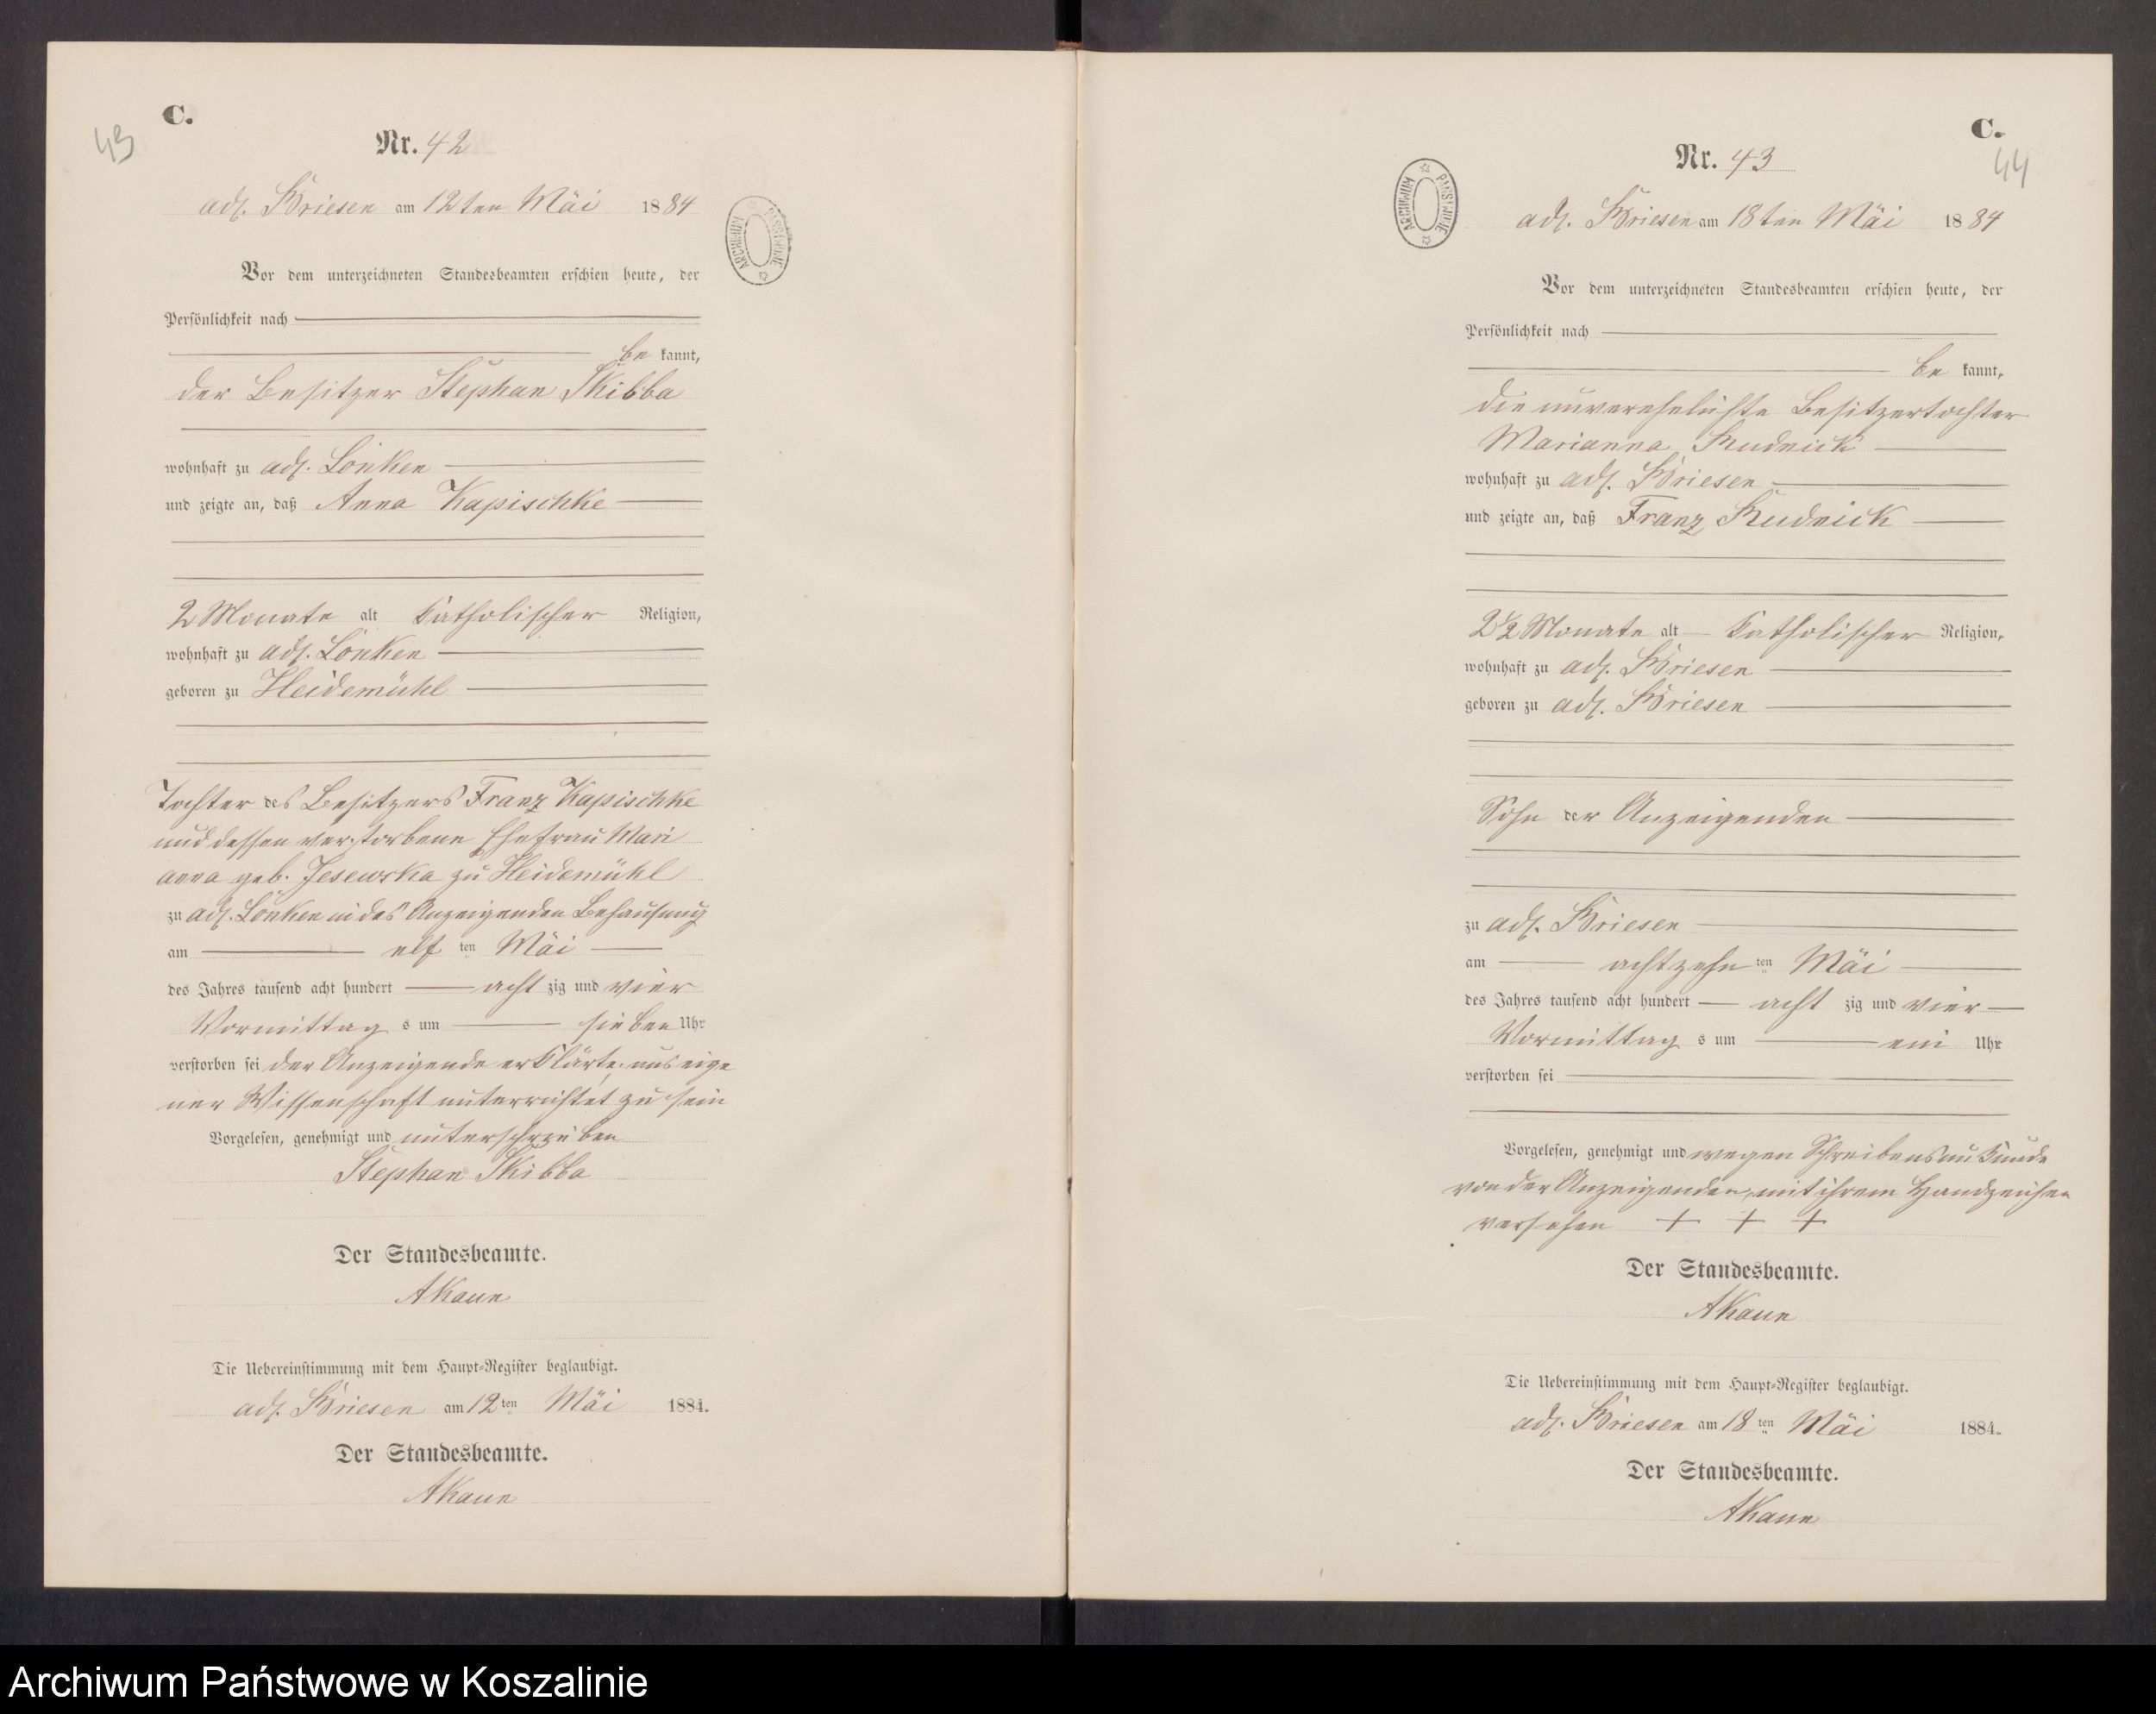 43
C.
Nr. 42
adl. Briesen am 12ten Mai 1884
ARCHIWUM PAŃSTWOWE
Vor dem unterzeichneten Standesbeamten erschien heute, der
Persönlichkeit nach
be kannt,
der Besitzer Stephan Skibba
wohnhaft zu adl. Lonken
und zeigte an, daß Anna Kapischke
2 Monate alt katholischer Religion,
wohnhaft zu adl. Lonken
geboren zu Heidemühl
Tochter des Besitzers Franz Kapischke
und dessen verstorbene Ehefrau Mari
anna geb. Jesewska zu Heidemühl
zu adl. Lonken in des Anzeigenden Behausung
am elf ten Mai
des Jahres tausend acht hundert acht zig und vier
Vormittag s um sieben Uhr
verstorben sei der Anzeigende erklärte, aus eige
ner Wissenschaft unterrichtet zu sein
Vorgelesen, genehmigt und unterschrieben
Stephan Skibba
Der Standesbeamte.
AKaun
Die Uebereinstimmung mit dem Haupt-Register beglaubigt.
adl. Briesen am 12 ten Mai 1884.
Der Standesbeamte.
AKaun
C.
44
Nr. 43
ARCHIWUM PAŃSTWOWE
adl. Briesen am 18ten Mai 1884
Vor dem unterzeichneten Standesbeamten erschien heute, der
Persönlichkeit nach
be kannt,
die unverehelichte Besitzertochter
Marianna Rudnick
wohnhaft zu adl. Briesen
und zeigte an, daß Franz Rudnick
2 1/2 Monate alt katholischer Religion,
wohnhaft zu adl. Briesen
geboren zu adl. Briesen
Sohn der Anzeigenden
zu adl. Briesen
am achtzehn ten Mai
des Jahres tausend acht hundert acht zig und vier
Vormittag s um ein Uhr
verstorben sei
Vorgelesen, genehmigt und wegen Schreibensunkunde
von der Anzeigenden mit ihrem Handzeichen
versehen + + +
Der Standesbeamte.
AKaun
Die Uebereinstimmung mit dem Haupt-Register beglaubigt.
adl. Briesen am 18 ten Mai 1884.
Der Standesbeamte.
AKaun
Archiwum Państwowe w Koszalinie